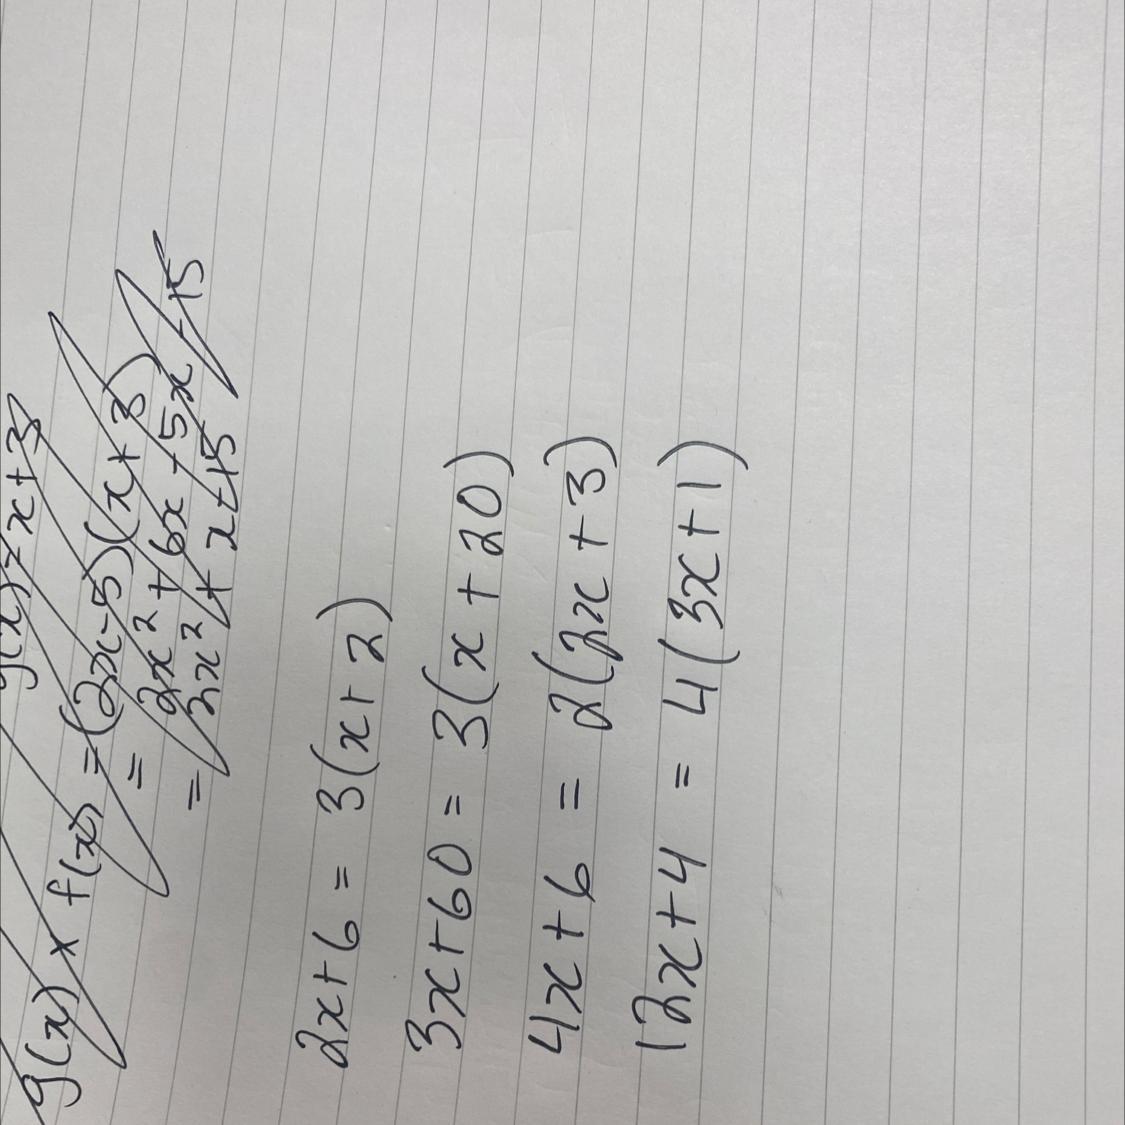 g(x) = x+3
g(x) x f(x) = (2x-5)(x+3)
= 2x² + 6x - 5x - 15
= 2x² + x - 15
2x+6 = 3(x+2)
3x+60 = 3(x+20)
4x+6 = 2(2x+3)
12x+4 = 4(3x+1)